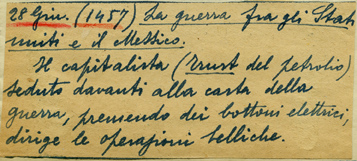 28 Giu. (1457) La guerra fra gli Stati
uniti e il Messico.
Il capitalista (Trust del petrolio)
seduto davanti alla carta della
guerra, premendo dei bottoni elettrici,
dirige le operazioni belliche.